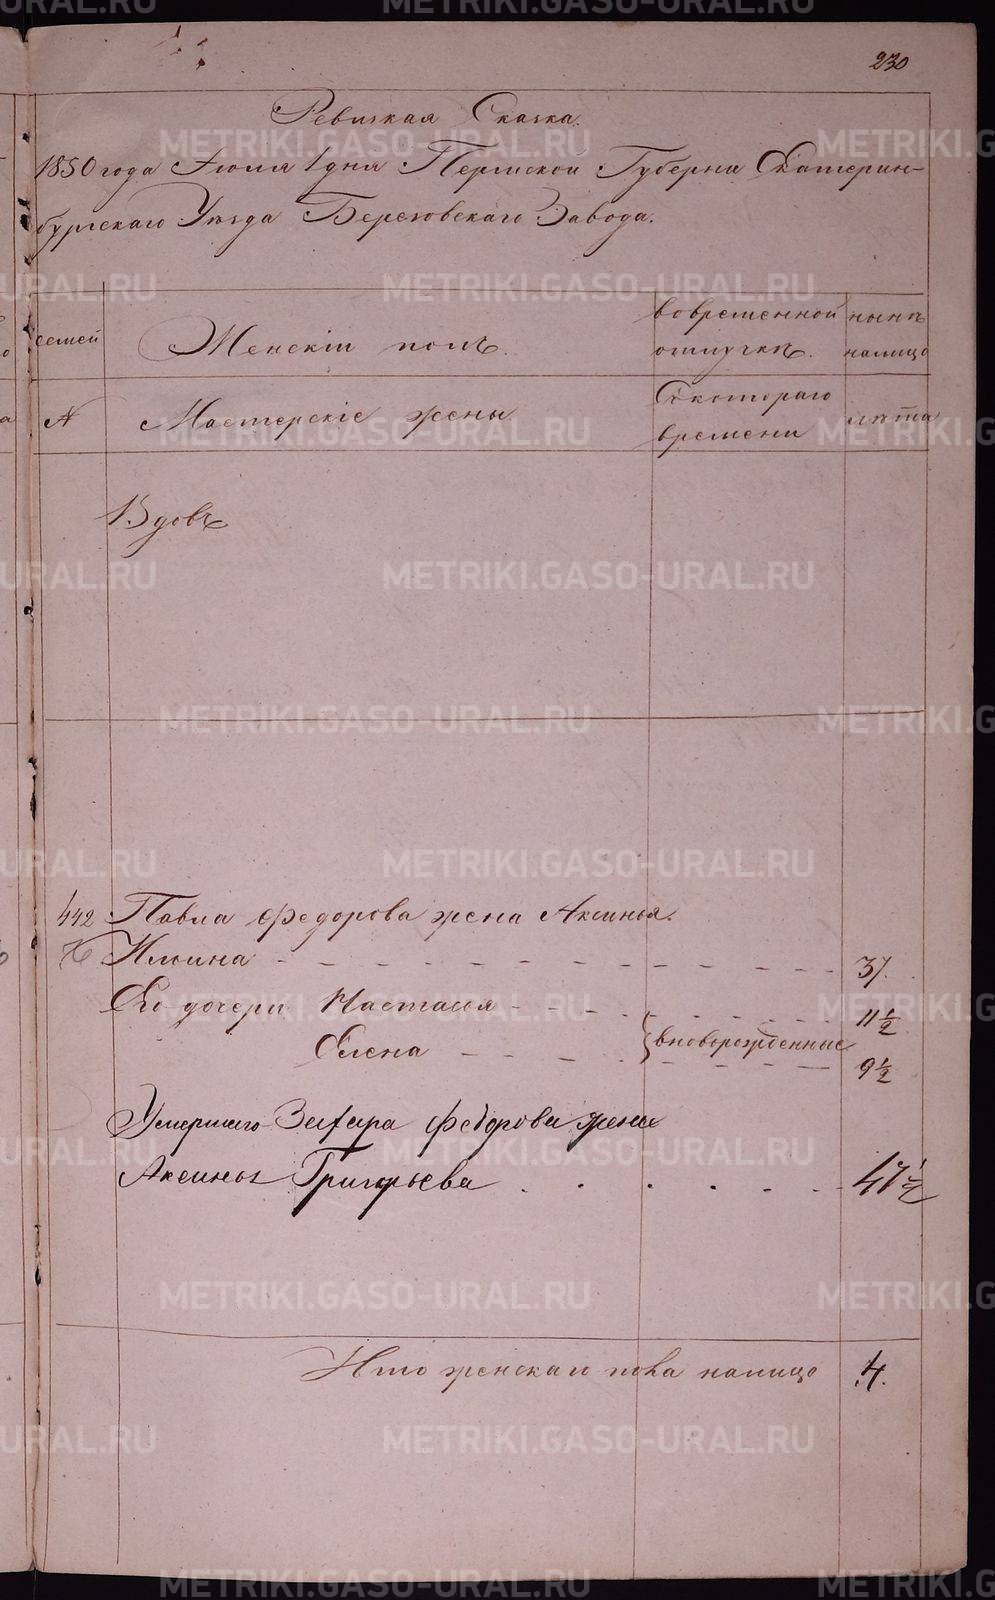 230
Ревизкая Сказка.
1850 года Июля 1 дня Пермской Губерни Екатерин-
бургскаго Уезда Березовскаго Завода.
семей
Женскій полъ.
вовременной отлучкѣ.
нынѣ налицо
№
Мастерскіе жены
Скотораго времени
лѣта
Вдовъ
442 Павла Федорова жена Аксинья
Ильина 37.
Его дочери Настасья 11 1/2
вновьрожденные
Елена 9 1/2
Умершаго Федорова жена
Аксинья Григорьева 47 1/2
Итого женскаго пола налицо 4.
METRIKI.GASO-URAL.RU